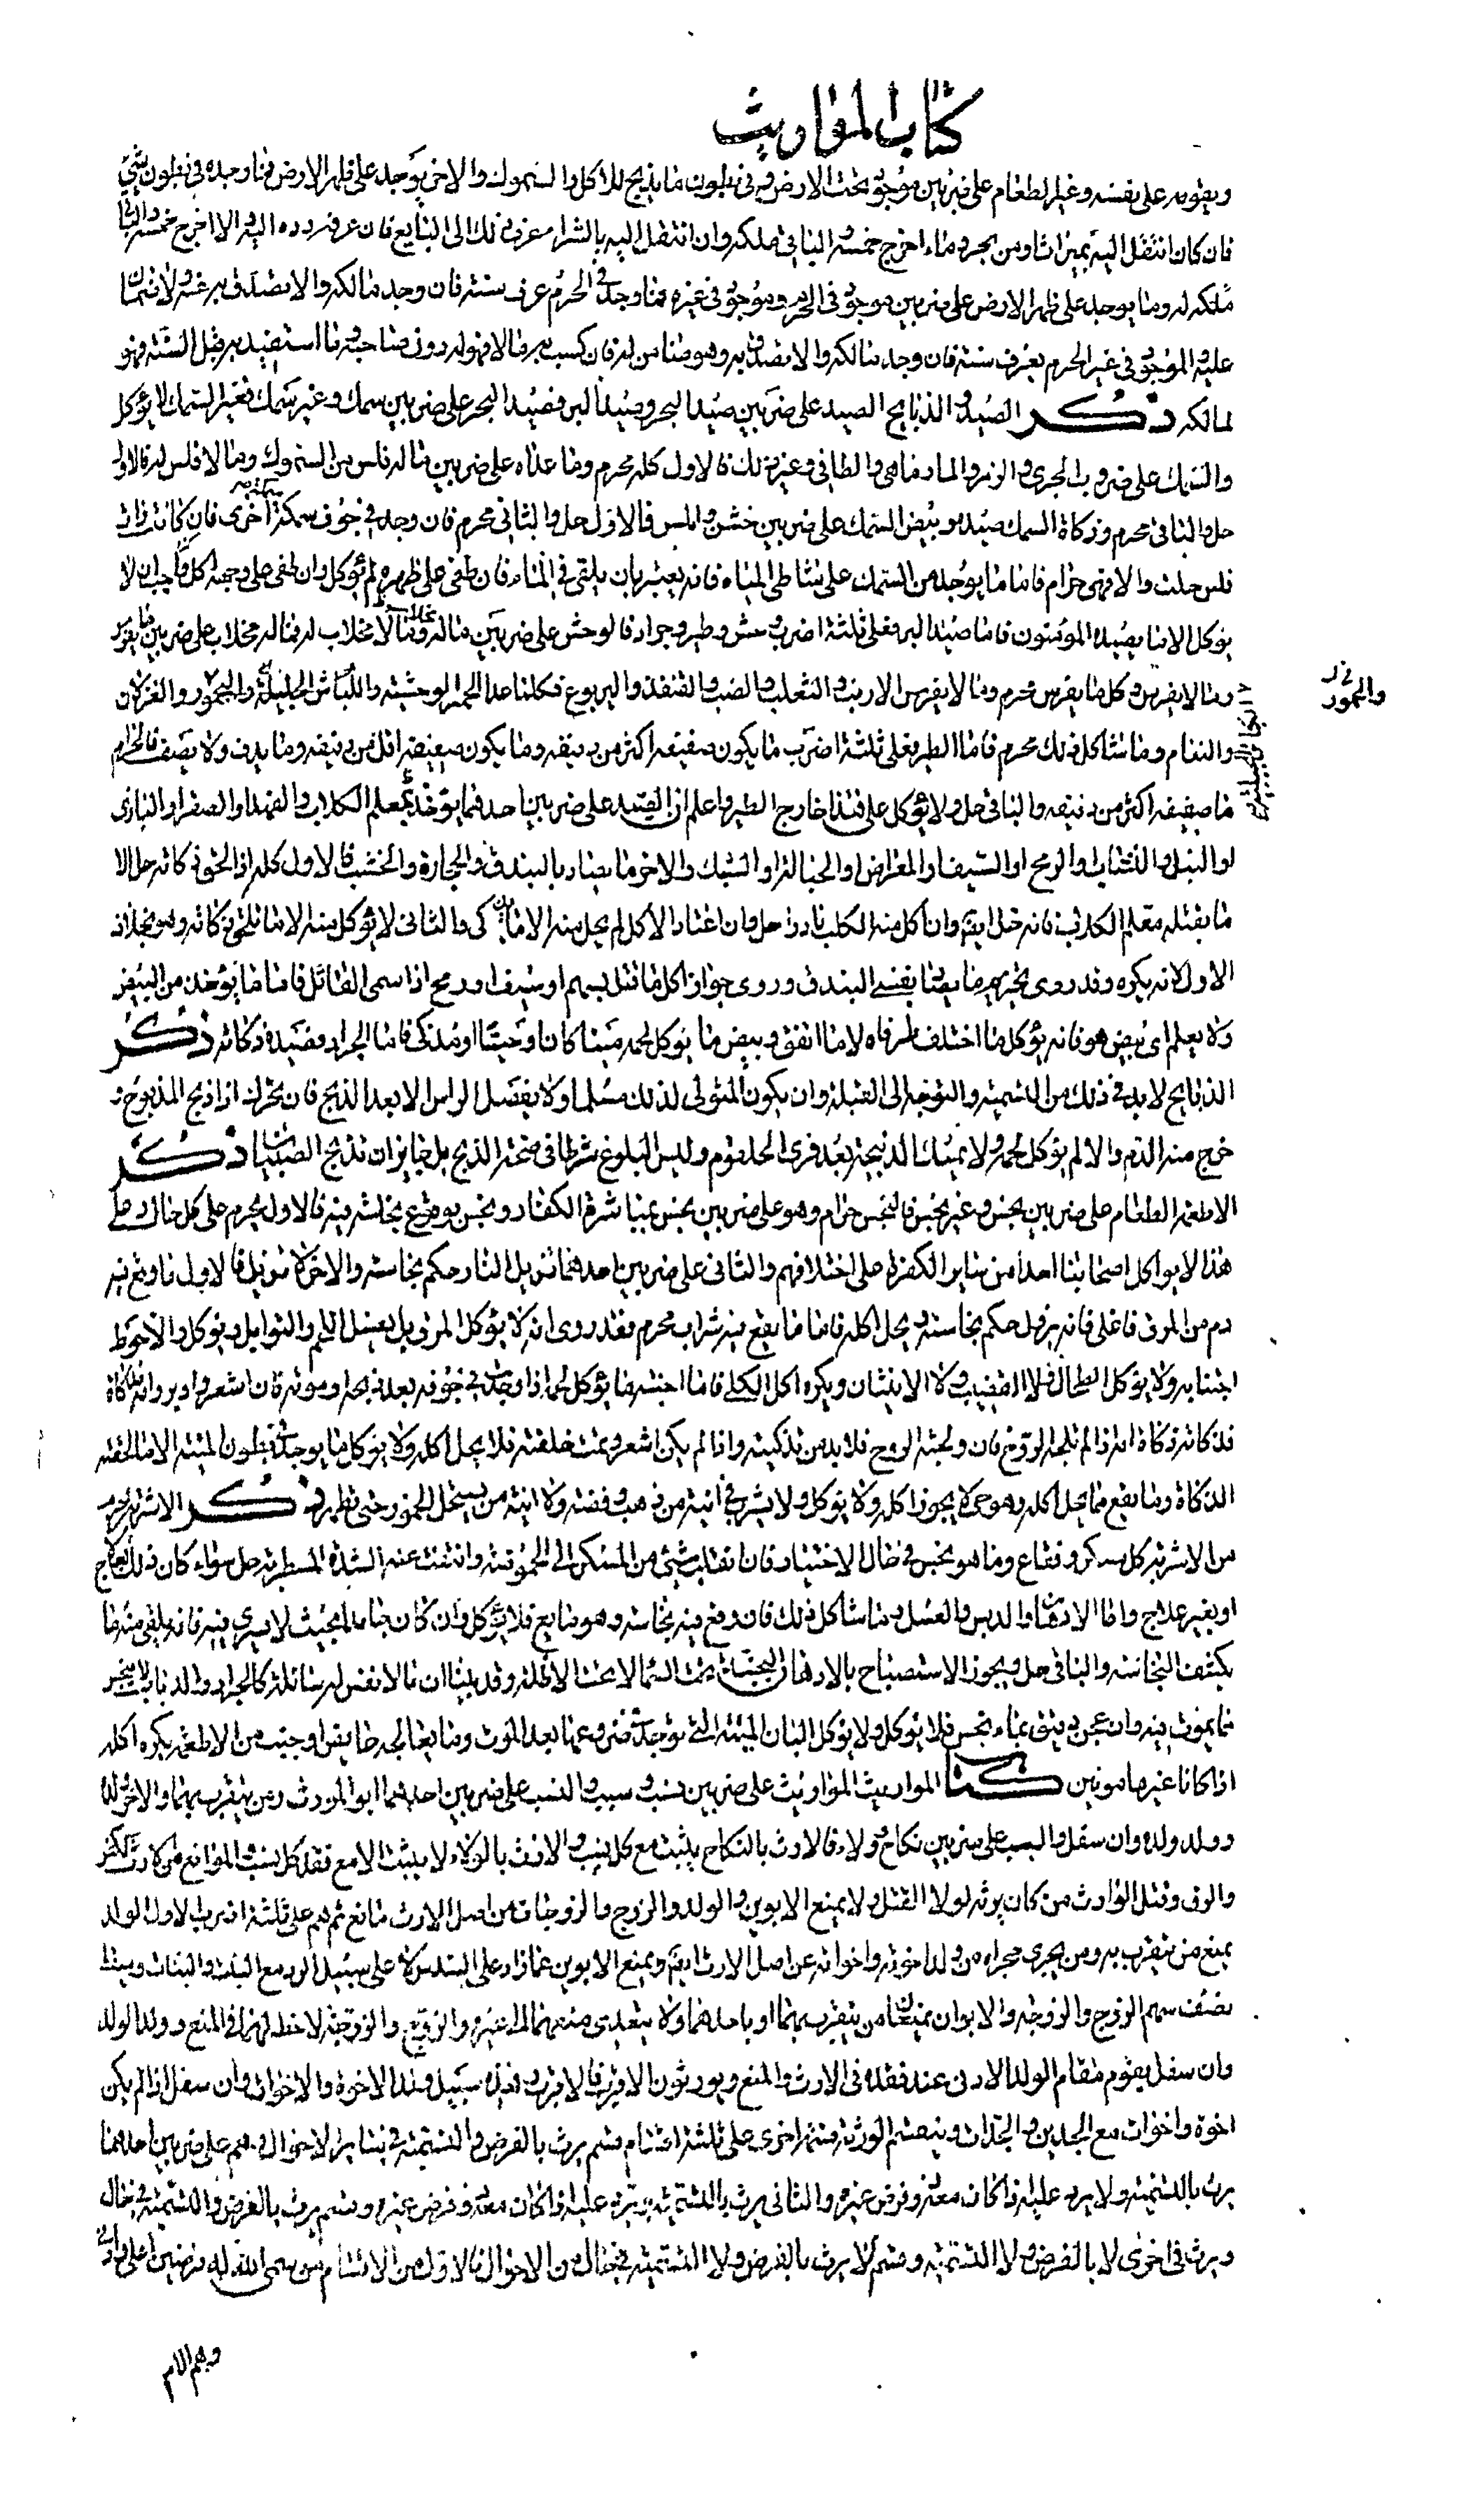 كتاب المواريث
ويقومه على نفسه وغير الطعام على ضربين موجود تحت الارض وفي بطون ما يذبح للاكل والسموك والاخر يوجد على ظهر الارض فما وجده في بطون شيء
فان كان انتقل اليه بميراث او من بحر وماء اخرج خمسه والباقي ملكه وان انتقل اليه بالشراء عرف ذلك الى البايع فان عرفه رده اليه والا اخرج خمسه والباقي
ملكه له وما يوجد على ظهر الارض على ضربين موجود في الحرم وموجود في غيره فما وجد في الحرم عرف سنة فان وجد مالكه والا تصدق به عنه ولا ضمان
عليه والموجود في غير الحرم يعرف سنة فان وجد مالكه والا تصدق به وهو ضامن له فان كسب به مالا فهو له دون صاحبه وما استفيد به قبل السنة فهو
لمالكه ذكر الصيد والذبايح الصيد على ضربين صيد البحر وصيد البر فصيد البحر على ضربين سمك وغير سمك فغير السمك لا يؤكل
والسمك على ضروب الجري والزمر والمارماهي والطافي وغير ذلك فالاول كله محرم وما عداه على ضربين ما له فلس من السموك وما لا فلس له فالاول
حل والثاني محرم وذكاة السمك صيده وبيض السمك على ضربين خشن واملس فالاول حل والثاني محرم فان وجد في جوف سمكة سمكة اخرى فان كانت ذات
فلس حلت والا فهي حرام فاما ما يوجد من السمك على شاطى المياه فانه يعتبر بان يلقى في الماء فان طفى على ظهره لم يؤكل وان طفى على وجهه اكل ويجب ان لا
يؤكل الا ما يصيده المؤمنون فاما صيد البر فعلى ثلثة اضرب وحش وطير وجراد فالوحش على ضربين ما له مخلب وما لا مخلاب له فما له مخلاب على ضربين ما يفرس
وما لا يفرس وكل ما يفرس محرم وما لا يفرس الارنب والثعلب والضب والقنفذ واليربوع فكل ما عدا الحمر الوحشية والكباش الجبلية واليحمور والغزلان
والنعام وما شاكل ذلك محرم فاما الطير فعلى ثلثة اضرب ما يكون صفيفه اكثر من دفيفه وما يكون صفيفه اقل من دفيفه وما يدف ولا يصف فالحرام
ما صفيفه اكثر من دفيفه والباقي حل ولا يؤكل على هذا خارج الطير واعلم ان الصيد على ضربين احدهما يؤخذ بمعلم الكلاب والفهد او الصقر او البازي
او النبل والنشاب والرمح او السيف او المعراض او الحبالة او الشبك والاخر ما يصاد بالبندق والحجارة والخشب فالاول كله اذا لحق ذكاته حل الا
ما يقتله معلم الكلاب فانه حل ايضا وان اكل منه الكلب نادرا حل وان اعتاد الاكل لم يحل منه الا ما يذكى والثاني لا يؤكل منه الا ما تلحق ذكاته وهو بخلاف
الاول لانه يكره وقد روى تحريم ما يصاد بقسي البندق وروى جواز اكل ما قتل بسهم او سيف او رمح اذا سمى القاتل فاما ما يؤخذ من البيض
ولا يعلم اى بيض هو فانه يؤكل ما اختلف طرفاه لا ما اتفق وبيض ما يؤكل لحمه ميتا كان او حيا او مذكى فاما الجراد فصيده ذكاته ذكر
الذبايح لا بد في ذلك من التسمية والتوجه الى القبلة وان يكون المتولي لذلك مسلما ولا يفصل الراس الا بعد الذبح فان تحرك اذا ذبح المذبوح و
خرج منه الدم والا لم يؤكل لحمه ولا يمسك الذبيحة بعد فرى الحلقوم وليس البلوغ شرطا في صحة الذبح بل جايز ان تذبح الصبيان ذكر
الاطعمة الطعام على ضربين نجس وغير نجس فالنجس حرام وهو على ضربين نجس بمباشرة الكفار ونجس بوقوع نجاسة فيه فالاول محرم على كل حال وعلى
هذا لا يواكل اصحابنا احدا من ساير الكفرة على اختلافهم والثاني على ضربين احدهما تزيل النار حكم نجاسته والاخر لا تزيل فالاول ما وقع فيه
دم من المرق فاغلى فانه يزول حكم نجاسته ويحل اكله فاما ما يقع فيه شراب محرم فقد روى انه لا يؤكل المرق بل يغسل اللحم والتوابل ويؤكل والاحوط
اجتنابه ولا يؤكل الطحال ولا القضيب ولا الانثيان ويكره اكل الكلى فاما اجنة ما يؤكل لحمه اذا وجدت في جوفه بعد ذبحه او موته فان اشعر او اوبر وامه مذكاة
فذكاته ذكاة امه اذا لم تلجه الروح فان ولجته الروح فلا بد من تذكيته واذا لم يكن اشعر وتمت خلقته فلا يحل اكله ولا يؤكل ما يوجد في بطون الميتة الا ما لحقته
الذكاة وما يقع مما يحل اكله وهو حي لا يجوز اكله ولا يؤكل ولا يشرب في انية من ذهب وفضة ولا انية من يستحل الخمر حتى تطهر ذكر الاشربة يحرم
من الاشربة كل مسكر وفقاع وما هو نجس في حال الاختيار فان انقلب شيء من المسكر الى الحموضة وانتفت عنه الشدة المسطربة حل سواء كان ذلك بعلاج
او بغير علاج واما الادهان والدبس والعسل وما شاكل ذلك فان وقع فيه نجاسة وهو مايع فلا يؤكل وان كان جامدا بحيث لا تسري فيه فانه يلقى منه ما
يكتنف النجاسة والباقي حل ويجوز الاستصباح بالادهان النجسة تحت السماء لا تحت الاظلة وقد بينا ان ما لا نفس له سائلة كالجراد والذباب لا ينجس
ما يموت فيه وان عجن دقيق بماء نجس فلا يؤكل ولا يؤكل البان الميتة التي توجد في ضروعها بعد الموت وما يعالجه حايض او جنب من الاطعمة يكره اكله
اذا كانا غير مامونين كتاب المواريث المواريث على ضربين نسب وسبب والنسب على ضربين احدهما ابو المورث ومن يتقرب بهما والاخر ولده
وولد ولده وان سفل والسبب على ضربين نكاح وولاء فالارث بالنكاح يثبت مع كل نسب والارث بالولاء لا يثبت الا مع فقد كل نسب والموانع من الارث الكفر
والرق وقتل الوارث من كان يرثه لولا القتل ولا يمنع الابوين والولد والزوج والزوجات من اصل الارث مانع ثم هم على ثلثة اضرب الاول الولد
يمنع من يتقرب به ومن يجري مجراه من ولد اخوته واخواته عن اصل الارث ايضا ويمنع الابوين عما زاد على السدس الا على سبيل الرد مع البنت والبنات ويمنعا
نصف سهم الزوج والزوجة والابوان يمنعان من يتقرب بهما او باحدهما ولا يتعدى منعهما الى غيره والزوج والزوجة لا حظ لهما في المنع وولد الولد
وان سفل يقوم مقام الولد الادنى عند فقده في الارث والمنع ويورثون الاقرب فالاقرب وهذه سبيل ولد الاخوة والاخوات وان سفل اذا لم يكن
اخوة واخوات مع الجدين والجدات وينقسم الورثة قسمة اخرى على ثلثة اقسام قسم يرث بالفرض والتسمية في ساير الاحوال وهم على ضربين احدهما
يرث بالتسمية ولا يرد عليه اذا كان معه ذو فرض غيره والثاني يرث بالتسمية ويرد عليه اذا كان معه ذو فرض غيره وقسم يرث بالفرض والتسمية في حال
ويرث في اخرى لا بالفرض ولا التسمية وقسم لا يرث بالفرض ولا التسمية في حال من الاحوال فالاول من الاقسام من سمى الله له فرضين اعلى وادنى
والحمور
وهم الام